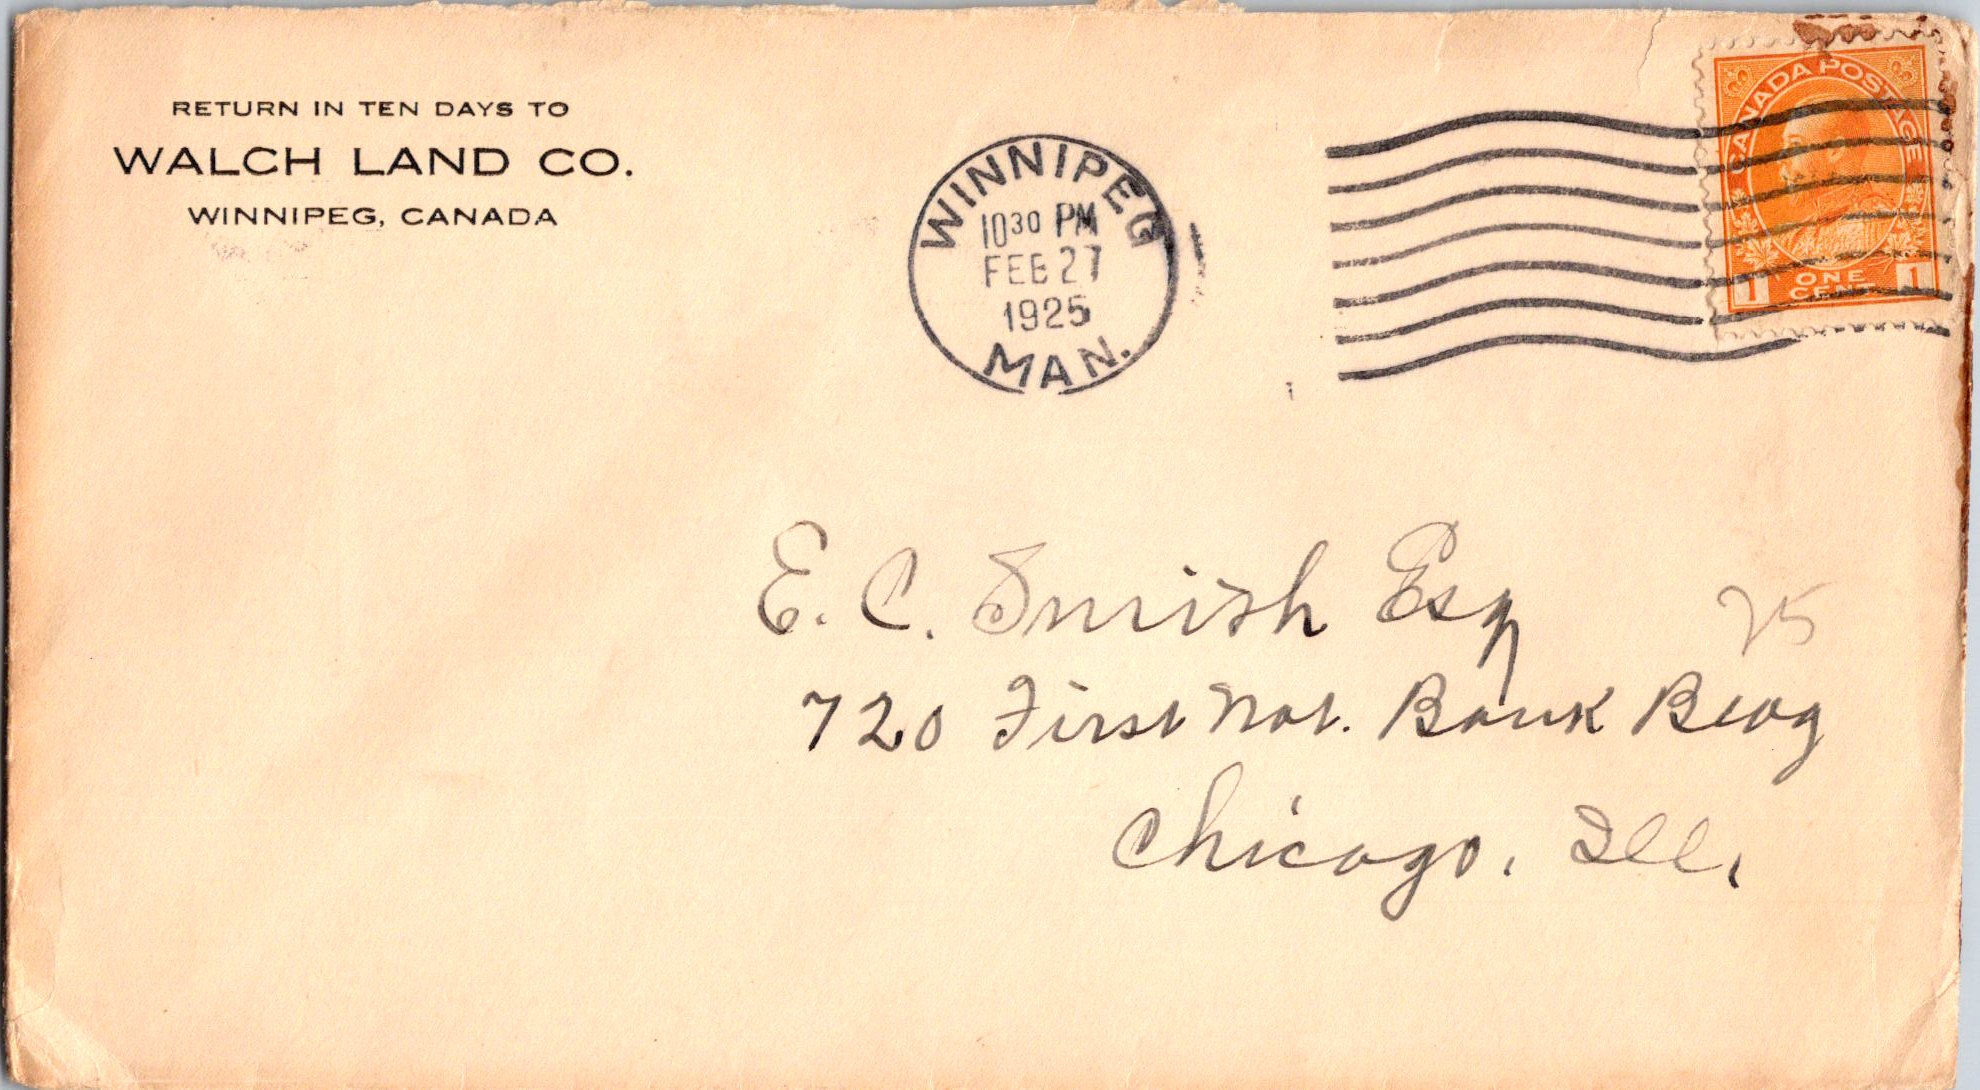 RETURN IN TEN DAYS TO
WALCH LAND CO.
WINNIPEG, CANADA
WINNIPEG
10 30 PM
FEB 27
1925
MAN.
CANADA POSTAGE
1 ONE CENT 1
E. C. Smish Esq
25
720 First Nat. Bank Bldg
Chicago, Ill,